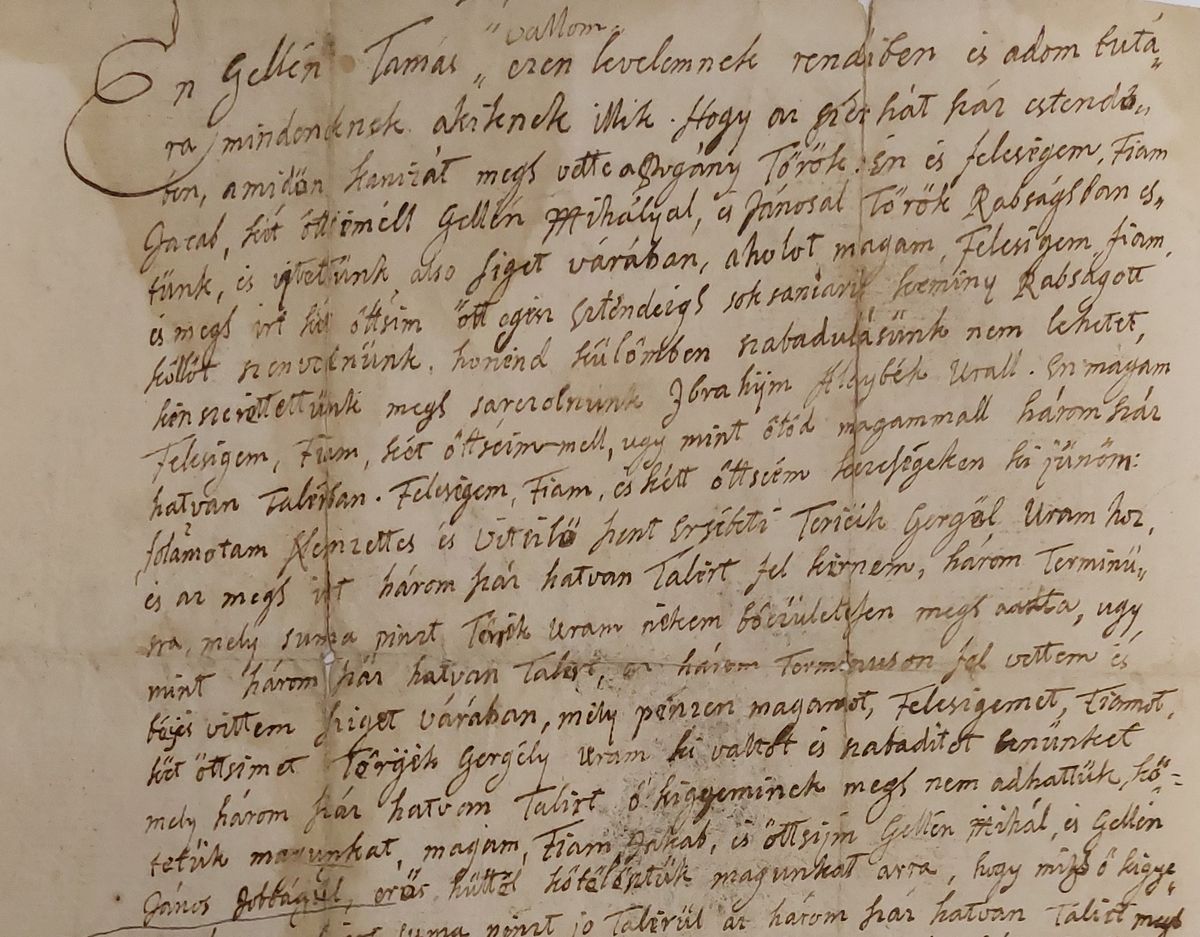 "vallom"
En Gellén Tamás " ezen levelemnek rendiben és adom tutá„
ra mindeneknek akiknek illik. Hogy az ezer hát száz estendö„
ben, amidön kanizát megs vette a Pogány Török: En és feleségem, Fiam
Jacab, két öttsiméll Gellén Mihályal, és Jánosal Török Rabságsban es„
tünk, és vitetünk also Siget várában, aholot magam, Felesigem, fiam,
és megs irt két öttsim ött egisz Esténdeigs sok saniarú keminy Rabságott
köllöt szenvednünk, honénd külömben szabadulásünk nem lehetet,
kénszerittettünk megs sarczolnunk Jbrahijm Alaybék Urall. En magam
Felesigem, Fiam, két öttséim mell, ugy mint ötöd magammall három száz
hatvan Talérban. Felesigem, Fiam, és kétt öttséém kezeségeken ki jünöm:
folamotam Nemzettes és Vitézlö szent Ersébeti Terjék Gergöl Uram hoz,
és az megs irt három száz hatvan Talért fel kérnem, három Terminü„
sra, mely suma pinzt Terjék Uram nékem böczületessen megs adtta, ugy
mint három száz hatvan Talért, az három Terminuson fel vettem és
béjis vittem sziget várában, mély pénzen magamot, Felesigemet, Fiamot,
két öttsimet Terjék Gergély Uram ki valtot és szabaditot benünket
mely három száz hatvan Talirt ö kigyeminek megs nem adhattük, kö=
tetük magunkat, magam, Fiam Jakab, és öttsijm Gellén Mihál, és Gellén
János Jobbágyúl, erös hüttöl kötelöztük magunkat arra, hogy mihö ö kigye„
suma pénzt jo Talérül az három száz hatvan Talirt megs